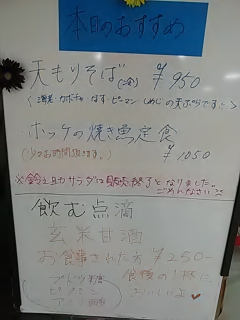 本日のおすすめ
天もりそば(冷) ¥950
(海老・カボチャ・なす・ピーマン しめじの天ぷらです)
ホッケの焼き魚定食
(少々お時間頂きます。) ¥1050
サラダは販売終了となりました。
ごめんなさい
飲む点滴
玄米甘酒
お食事された方 ¥250-
食後の1杯に
おいしいよ♥